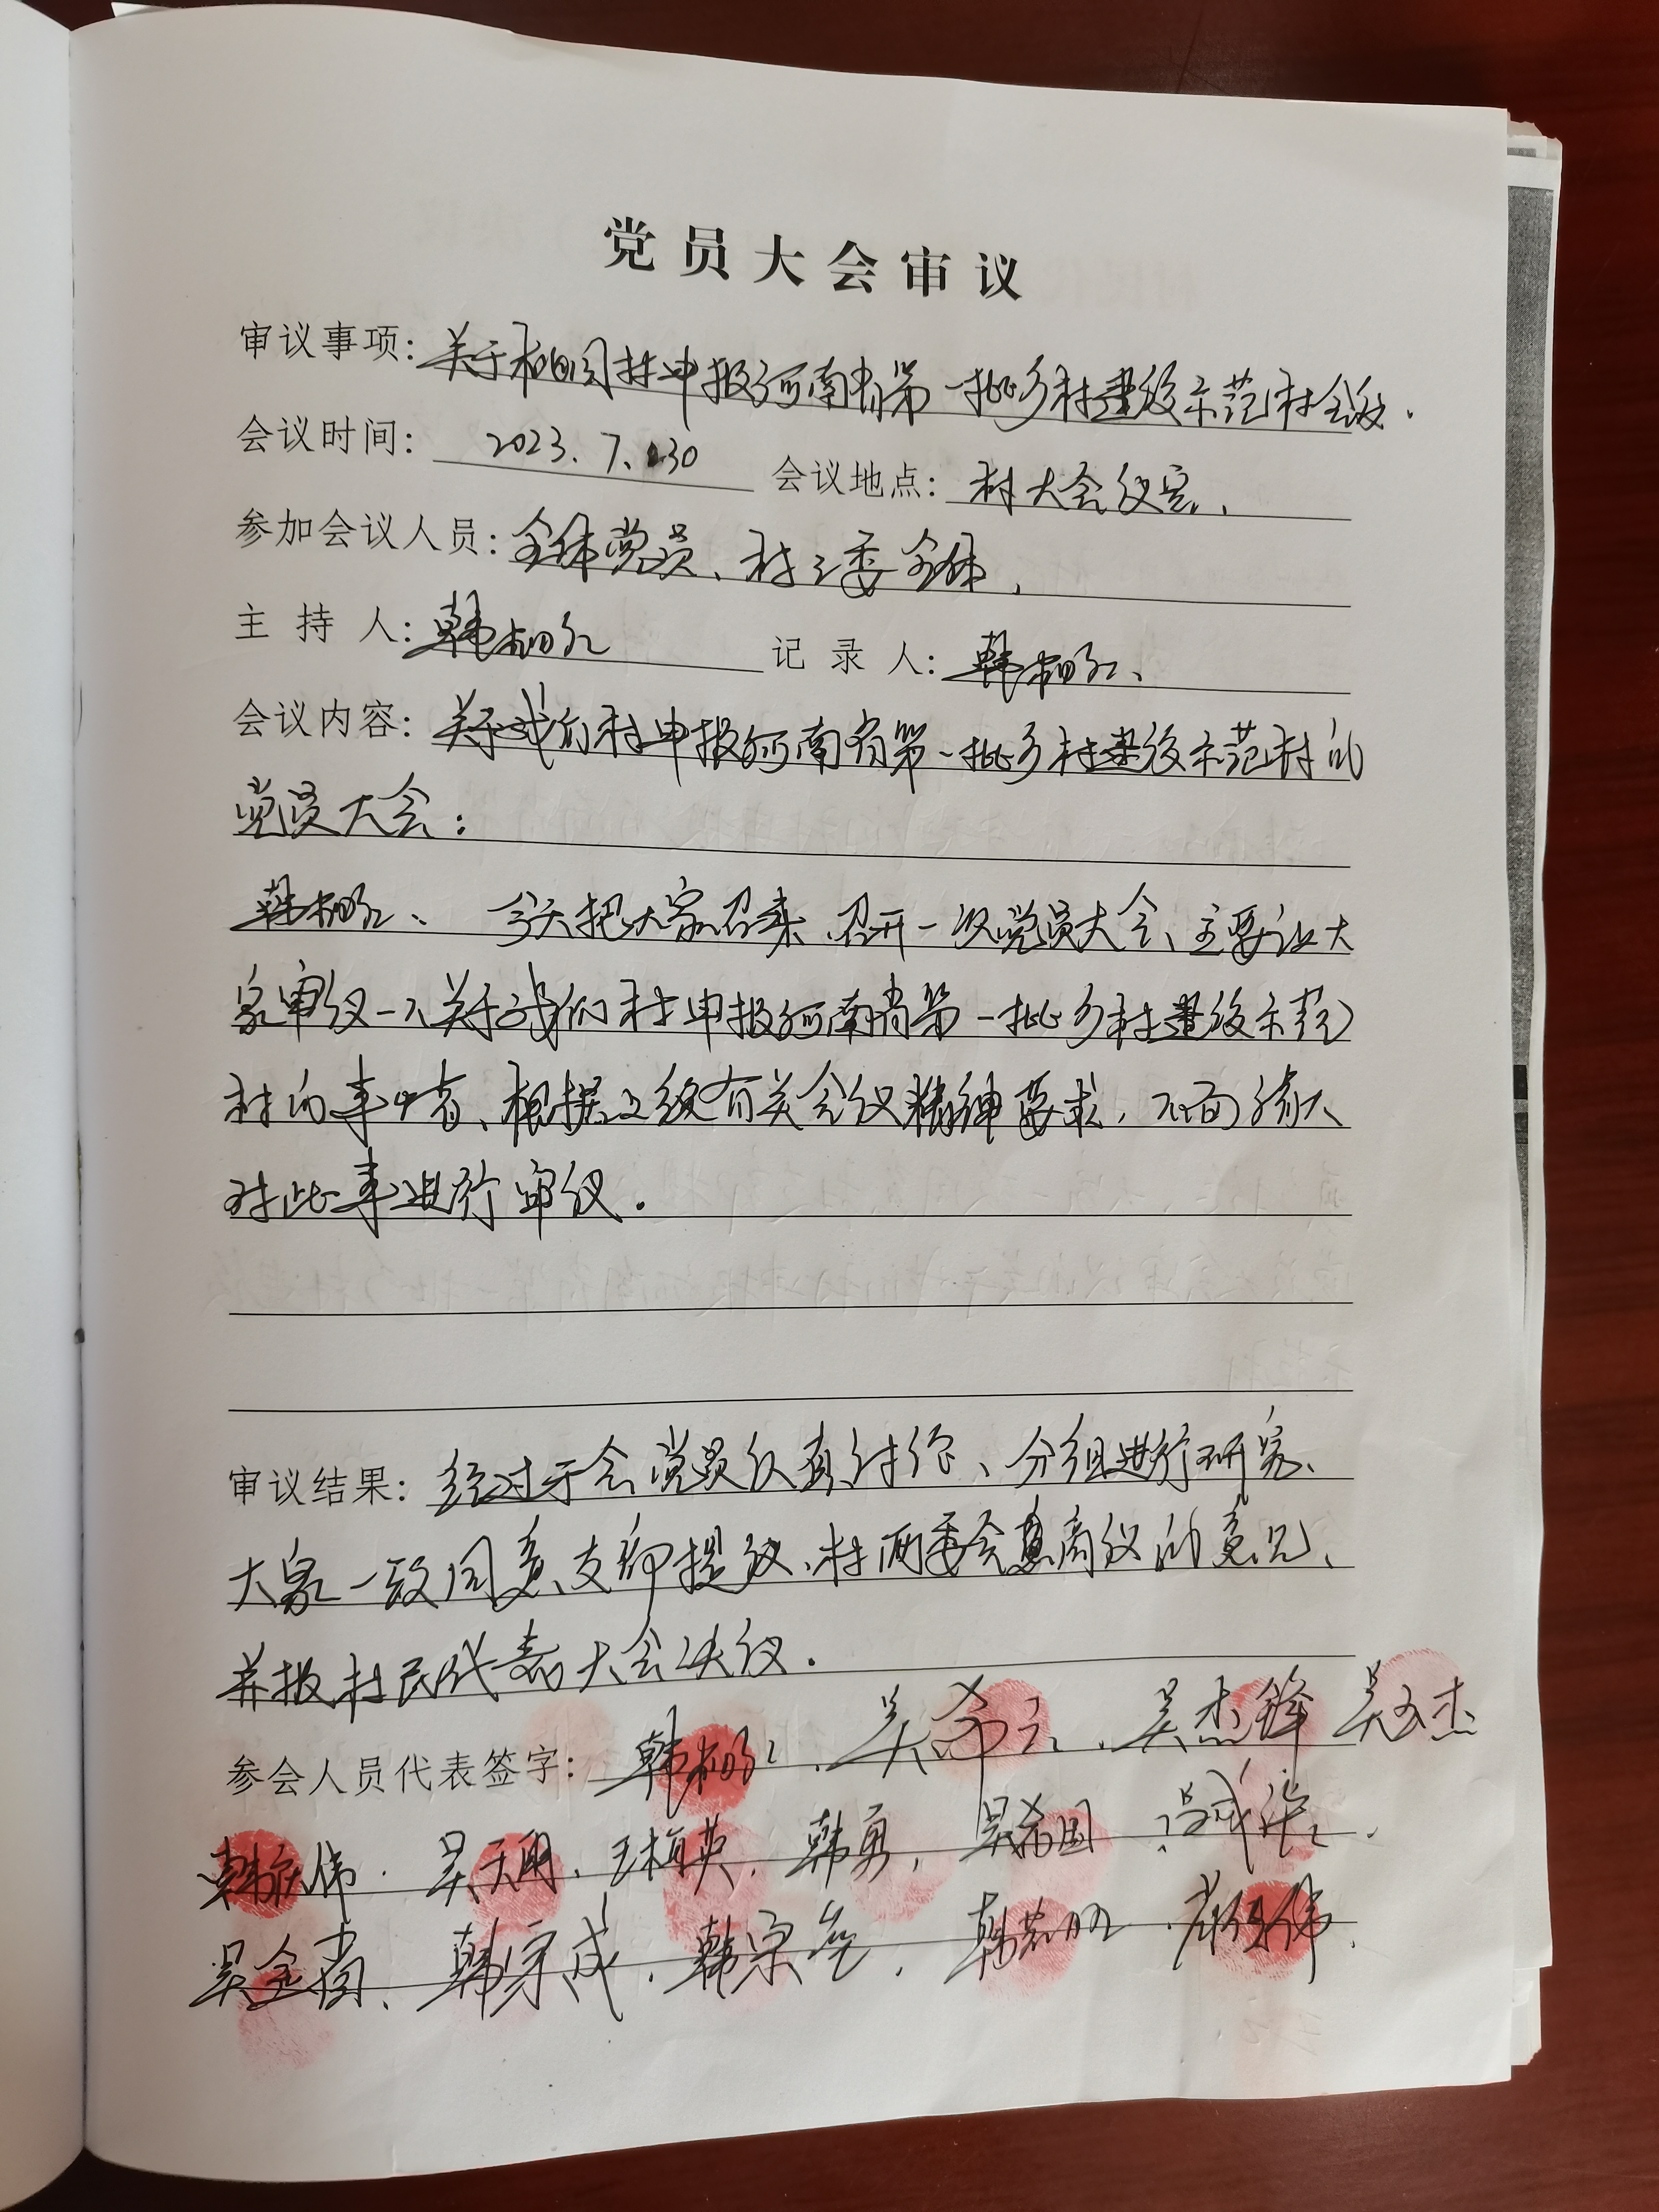 党员大会审议
审议事项: 关于 村申报河南省第一批乡村建设示范村会议.
会议时间: 2023.7.30 会议地点: 村大会议室.
参加会议人员: 全体党员、村三委全体.
主持人: 韩 记录人: 韩
会议内容: 关于我们村申报河南省第一批乡村建设示范村的
党员大会:
韩 、今天把大家召来,召开一次党员大会、主要让大
家审议一下关于我们村申报河南省第一批乡村建设示范
村的事 、根据上级有关会议精神要求,下面请大
对此事进行审议.
审议结果: 经过于会党员认真讨论、分组进行研究、
大家一致同意、支部提议、村两委会 商议的意见、
并报村民代表大会决议.
参会人员代表签字: 韩 、吴 、吴杰锋 吴 杰
韩 伟. 吴天 、王梅英. 韩勇, 吴 国
吴金 、韩宗成、韩宗 . 韩 伟.